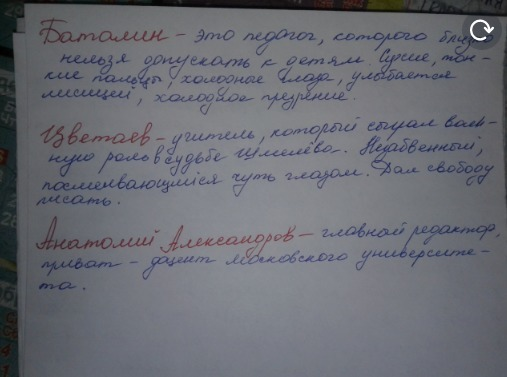 Баталин – это педагог, которого близко
нельзя допускать к детям. Сухие, тон-
кие пальцы, холодные глаза, улыбается
лисицей, холодное презрение.
Цветаев – учитель, который сыграл важ-
ную роль в судьбе Шмелёва. Незабвенный,
посмеивающийся чуть глазом. Дал свободу
писать.
Анатолий Александров – главный редактор,
приват – доцент Московского университе-
та.